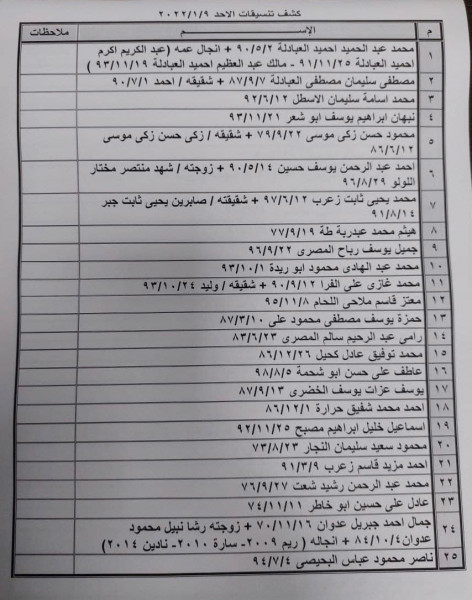 كشف تنسيقات الاحد ٢٠٢٢/١/٩
م الإســـم ملاحظات
١ محمد عبد الحميد احميد العبادلة ٩٠/٥/٢ + انجال عمه (عبد الكريم اكرم
احميد العبادلة ٩١/١١/٢٥ - مالك عبد العظيم احميد العبادلة ٩٣/١١/١٩ )
٢ مصطفى سليمان مصطفى العبادلة ٨٧/٩/٧ + شقيقه / احمد ٩٠/٧/١
٣ محمد اسامة سليمان الاسطل ٩٢/٦/١٢
٤ نبهان ابراهيم يوسف ابو شعر ٩٣/١١/٢١
٥ محمود حسن زكى موسى ٧٩/٩/٢٢ + شقيقه / زكى حسن زكى موسى
٨٦/٦/١٢
٦ احمد عبد الرحمن يوسف حسين ٩٠/٥/١٤ + زوجته / شهد منتصر مختار
اللولو ٩٦/٨/٢٩
٧ محمد يحيى ثابت زعرب ٩٧/٦/١٢ + شقيقته / صابرين يحيى ثابت جبر
٩١/٨/١٤
٨ هيثم محمد عبدربة طة ٧٧/٩/١٩
٩ جميل يوسف رباح المصرى ٩٦/٩/٢٢
١٠ محمد عبد الهادى محمود ابو ريدة ٩٣/١٠/١
١١ محمد غازى على الفرا ٩٠/٩/١٢ + شقيقه / وليد ٩٣/١٠/٢٤
١٢ معتز قاسم ملاحى اللحام ٩٥/١١/٨
١٣ حمزة يوسف مصطفى محمود على ٨٧/٣/١٠
١٤ رامى عبد الرحيم سالم المصرى ٨٣/٦/٢٣
١٥ محمد توفيق عادل كحيل ٨٦/١٢/٢٦
١٦ عاطف على حسن ابو شحمة ٩٨/٨/٥
١٧ يوسف عزات يوسف الخضرى ٨٧/٩/١٣
١٨ احمد محمد شفيق حرارة ٨٦/١٢/١
١٩ اسماعيل خليل ابراهيم مصبح ٩٢/١١/٢٥
٢٠ محمود سعيد سليمان النجار ٧٣/٨/٢٣
٢١ احمد مزيد قاسم زعرب ٩١/٣/٩
٢٢ محمد عبد الرحمن رشيد شعت ٧٦/٩/٢٧
٢٣ عادل على حسين ابو خاطر ٧٤/١١/١١
٢٤ جمال احمد جبريل عدوان ٧٠/١١/١٦ + زوجته رشا نبيل محمود
عدوان ٨٤/١٠/٤ + انجاله ( ريم ٢٠٠٩- سارة ٢٠١٠- نادين ٢٠١٤ )
٢٥ ناصر محمود عباس البحيصى ٩٤/٧/٤